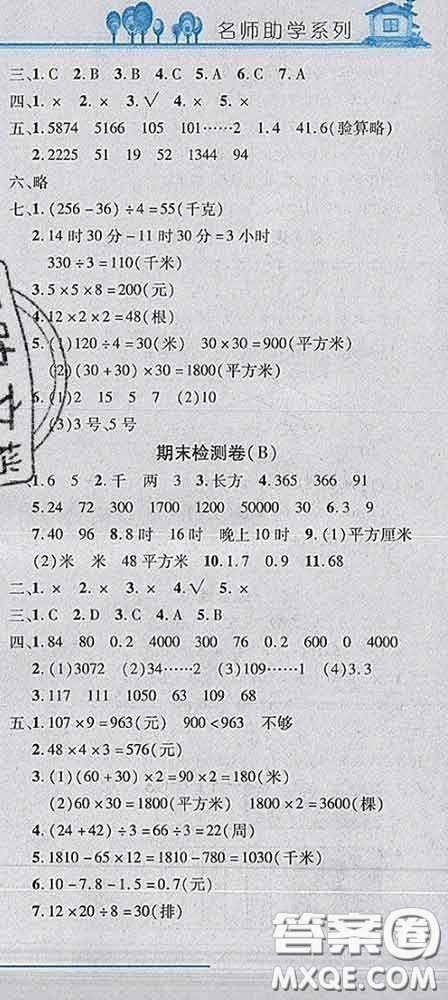 名师助学系列
三、1. C 2. B 3. B 4. C 5. A 6. C 7. A
四、1. × 2. × 3. √ 4. × 5. ×
五、1. 5874 5166 105 101……2 1.4 41.6(验算略)
2. 2225 51 19 52 1344 94
六、略
七、1. (256－36)÷4＝55(千克)
2. 14时30分－11时30分＝3小时
330÷3＝110(千米)
3. 5×5×8＝200(元)
4. 12×2×2＝48(根)
5. (1)120÷4＝30(米) 30×30＝900(平方米)
(2)(30＋30)×30＝1800(平方米)
6. (1)2 15 5 7 (2)10
(3)3号、5号
期末检测卷(B)
1. 6 5 2. 千 两 3 3. 长方 4. 365 366 91
5. 24 72 300 1700 1200 50000 6. 3 9
7. 40 96 8. 8时 16时 晚上10时 9. (1)平方厘米
(2)米 米 48平方米 10. 1.7 0.9 11. 68
二、1. × 2. × 3. × 4. √ 5. ×
三、1. C 2. D 3. C 4. A 5. B
四、1. 84 80 0.2 4000 300 76 0.2 600 0 4000
2. (1)3072 (2)34……2 (3)109……1 (4)3.3
3. 117 111 1050 63 109 68
五、1. 107×9＝963(元) 900＜963 不够
2. 48×4×3＝576(元)
3. (1)(60＋30)×2＝90×2＝180(米)
(2)60×30＝1800(平方米) 1800×2＝3600(棵)
4. (24＋42)÷3＝66÷3＝22(周)
5. 1810－65×12＝1810－780＝1030(千米)
6. 10－7.8－1.5＝0.7(元)
7. 12×20÷8＝30(排)
答案圈
MXQE.COM